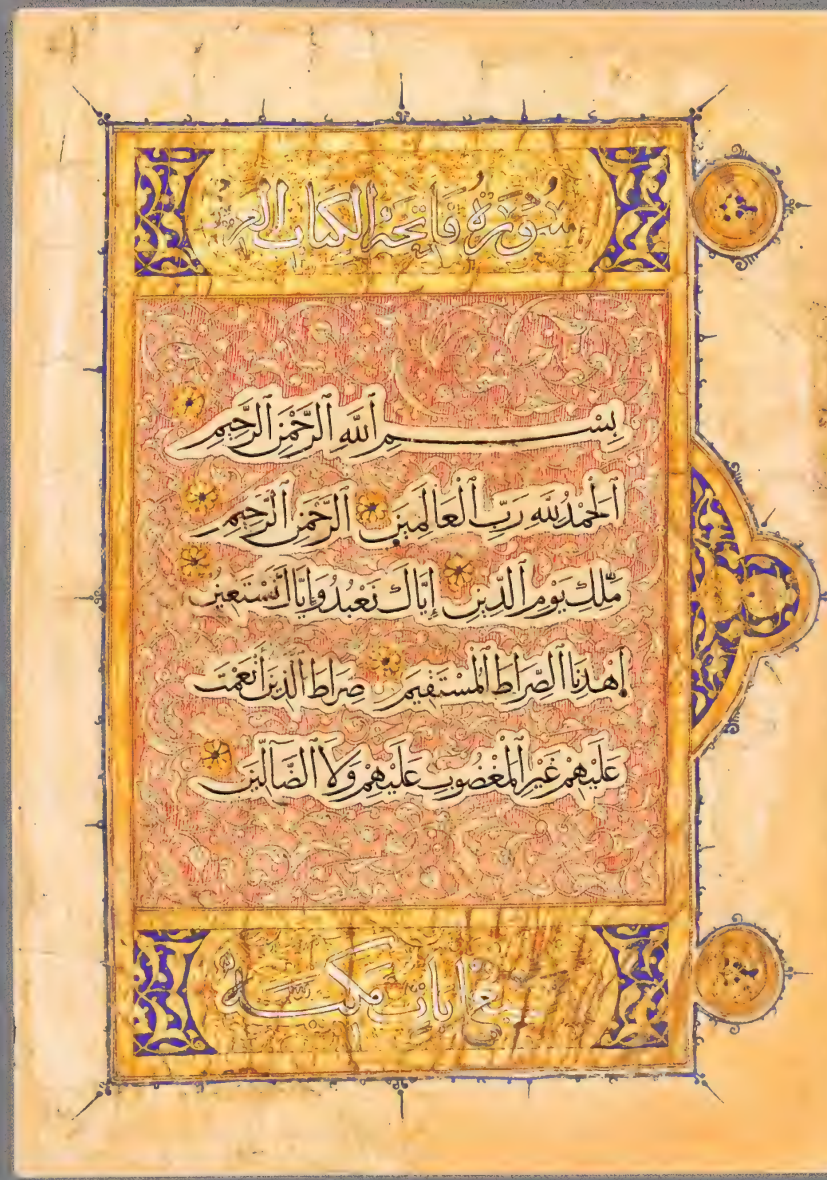 سُورَةُ فَاتِحَةِ الكِتَابِ
بِسْمِ ٱللَّهِ ٱلرَّحْمَٰنِ ٱلرَّحِيمِ
ٱلْحَمْدُ لِلَّهِ رَبِّ ٱلْعَالَمِينَ ٱلرَّحْمَٰنِ ٱلرَّحِيمِ
مَٰلِكِ يَوْمِ ٱلدِّينِ إِيَّاكَ نَعْبُدُ وَإِيَّاكَ نَسْتَعِينُ
ٱهْدِنَا ٱلصِّرَاطَ ٱلْمُسْتَقِيمَ صِرَاطَ ٱلَّذِينَ أَنْعَمْتَ
عَلَيْهِمْ غَيْرِ ٱلْمَغْضُوبِ عَلَيْهِمْ وَلَا ٱلضَّآلِّينَ
سبع ايات مكية